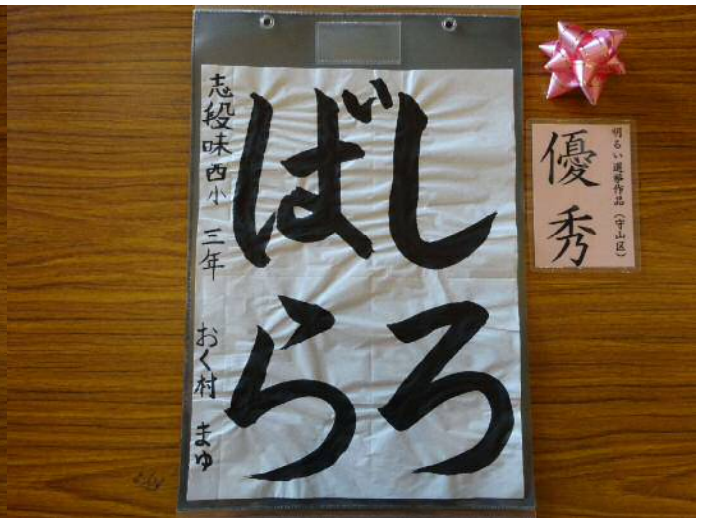 しろ
ばら
志段味西小 三年 おく村 まゆ
明るい選挙作品（守山区）
優秀